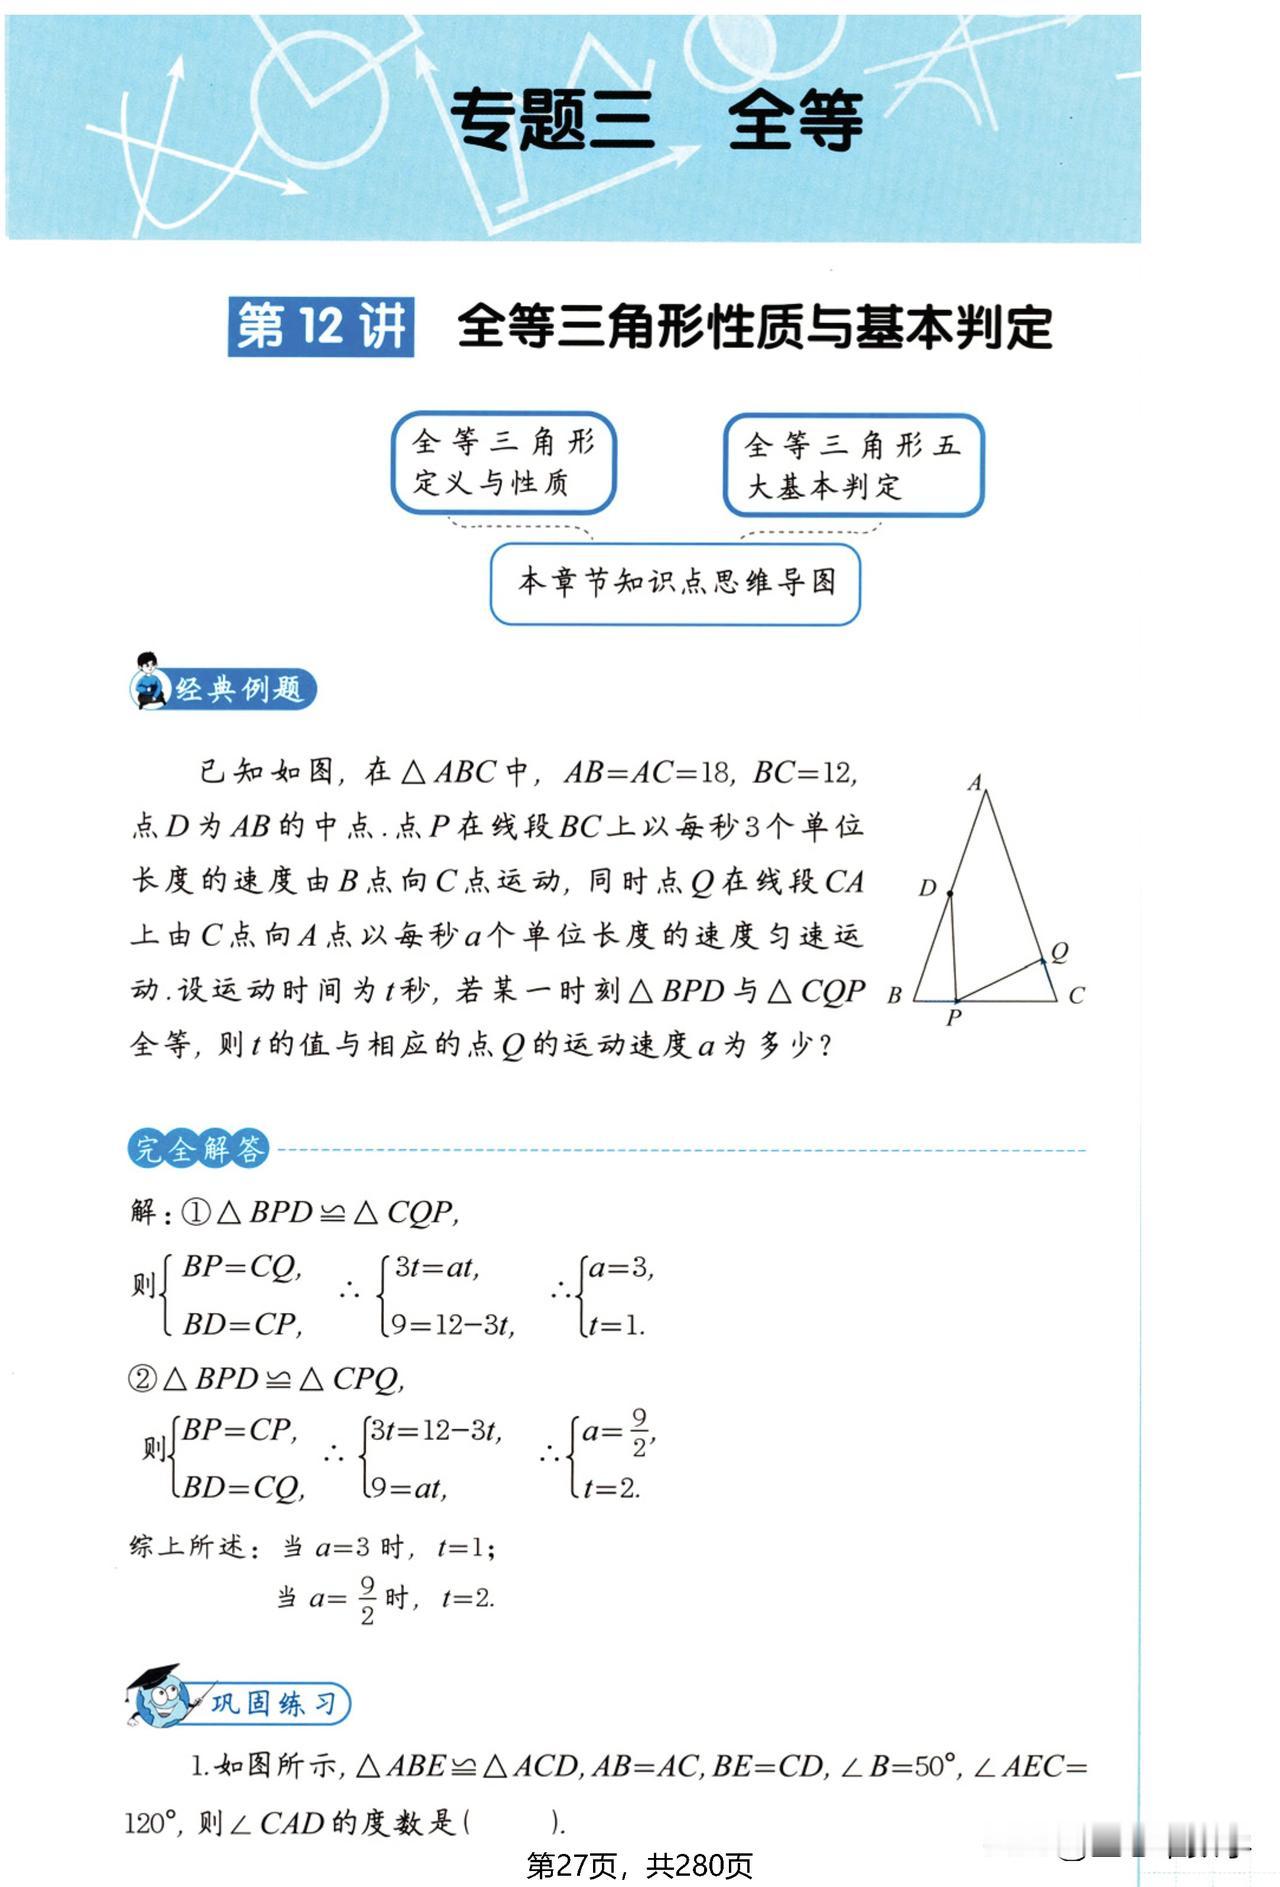 专题三 全等
第12讲 全等三角形性质与基本判定
全等三角形
定义与性质
全等三角形五
大基本判定
本章节知识点思维导图
经典例题
已知如图, 在△ABC中, AB=AC=18, BC=12,
点D为AB的中点.点P在线段BC上以每秒3个单位
长度的速度由B点向C点运动, 同时点Q在线段CA
上由C点向A点以每秒a个单位长度的速度匀速运
动.设运动时间为t秒, 若某一时刻△BPD与△CQP
全等, 则t的值与相应的点Q的运动速度a为多少?
A
D
Q
B
P
C
完全解答
解: ①△BPD≌△CQP,
则{BP=CQ, ∴{3t=at, ∴{a=3,
BD=CP, 9=12−3t, t=1.
②△BPD≌△CPQ,
则{BP=CP, ∴{3t=12−3t, ∴{a=9/2,
BD=CQ, 9=at, t=2.
综上所述: 当a=3时, t=1;
当a=9/2时, t=2.
巩固练习
1.如图所示, △ABE≌△ACD, AB=AC, BE=CD, ∠B=50°, ∠AEC=
120°, 则∠CAD的度数是( ).
第27页，共280页